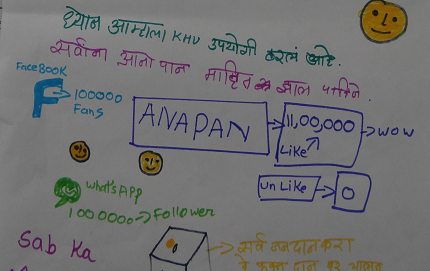 ध्यान आम्हाला KHU उपयोगी करलं आहे.
सर्वांना आनो पान माहित झाल पाहिजे.
FaceBOOK
F → 100000
Fans
ANAPAN
11,00,000
Like
→ WOW
UnLike → 0
What'sAPP
1000000 → Follower
Sab Ka